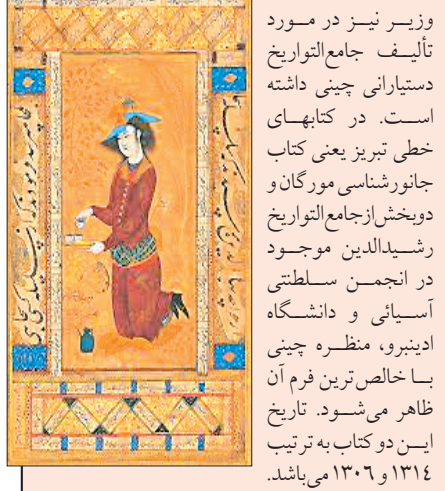 وزیر نیز در مورد
تألیف جامع‌التواریخ
دستیارانی چینی داشته
است. در کتابهای
خطی تبریز یعنی کتاب
جانورشناسی مورگان و
دوبخش‌ازجامع‌التواریخ
رشیدالدین موجود
در انجمن سلطنتی
آسیائی و دانشگاه
ادینبرو، منظره چینی
با خالص‌ترین فرم آن
ظاهر می‌شود. تاریخ
این دو کتاب به ترتیب
١٣١٤ و ١٣٠٦ می‌باشد.